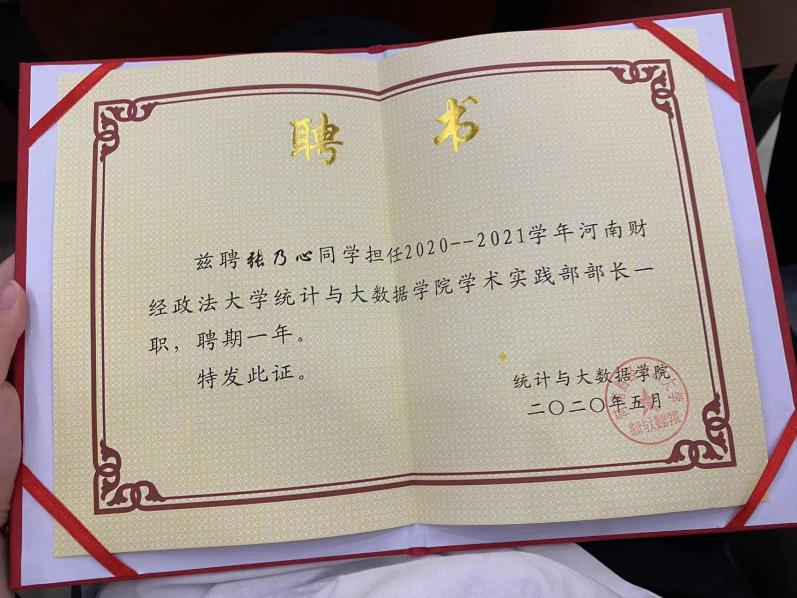 聘 书
兹聘张乃心同学担任2020--2021学年河南财
经政法大学统计与大数据学院学术实践部部长一
职，聘期一年。
特发此证。
统计与大数据学院
二〇二〇年五月
统计与大数据学院